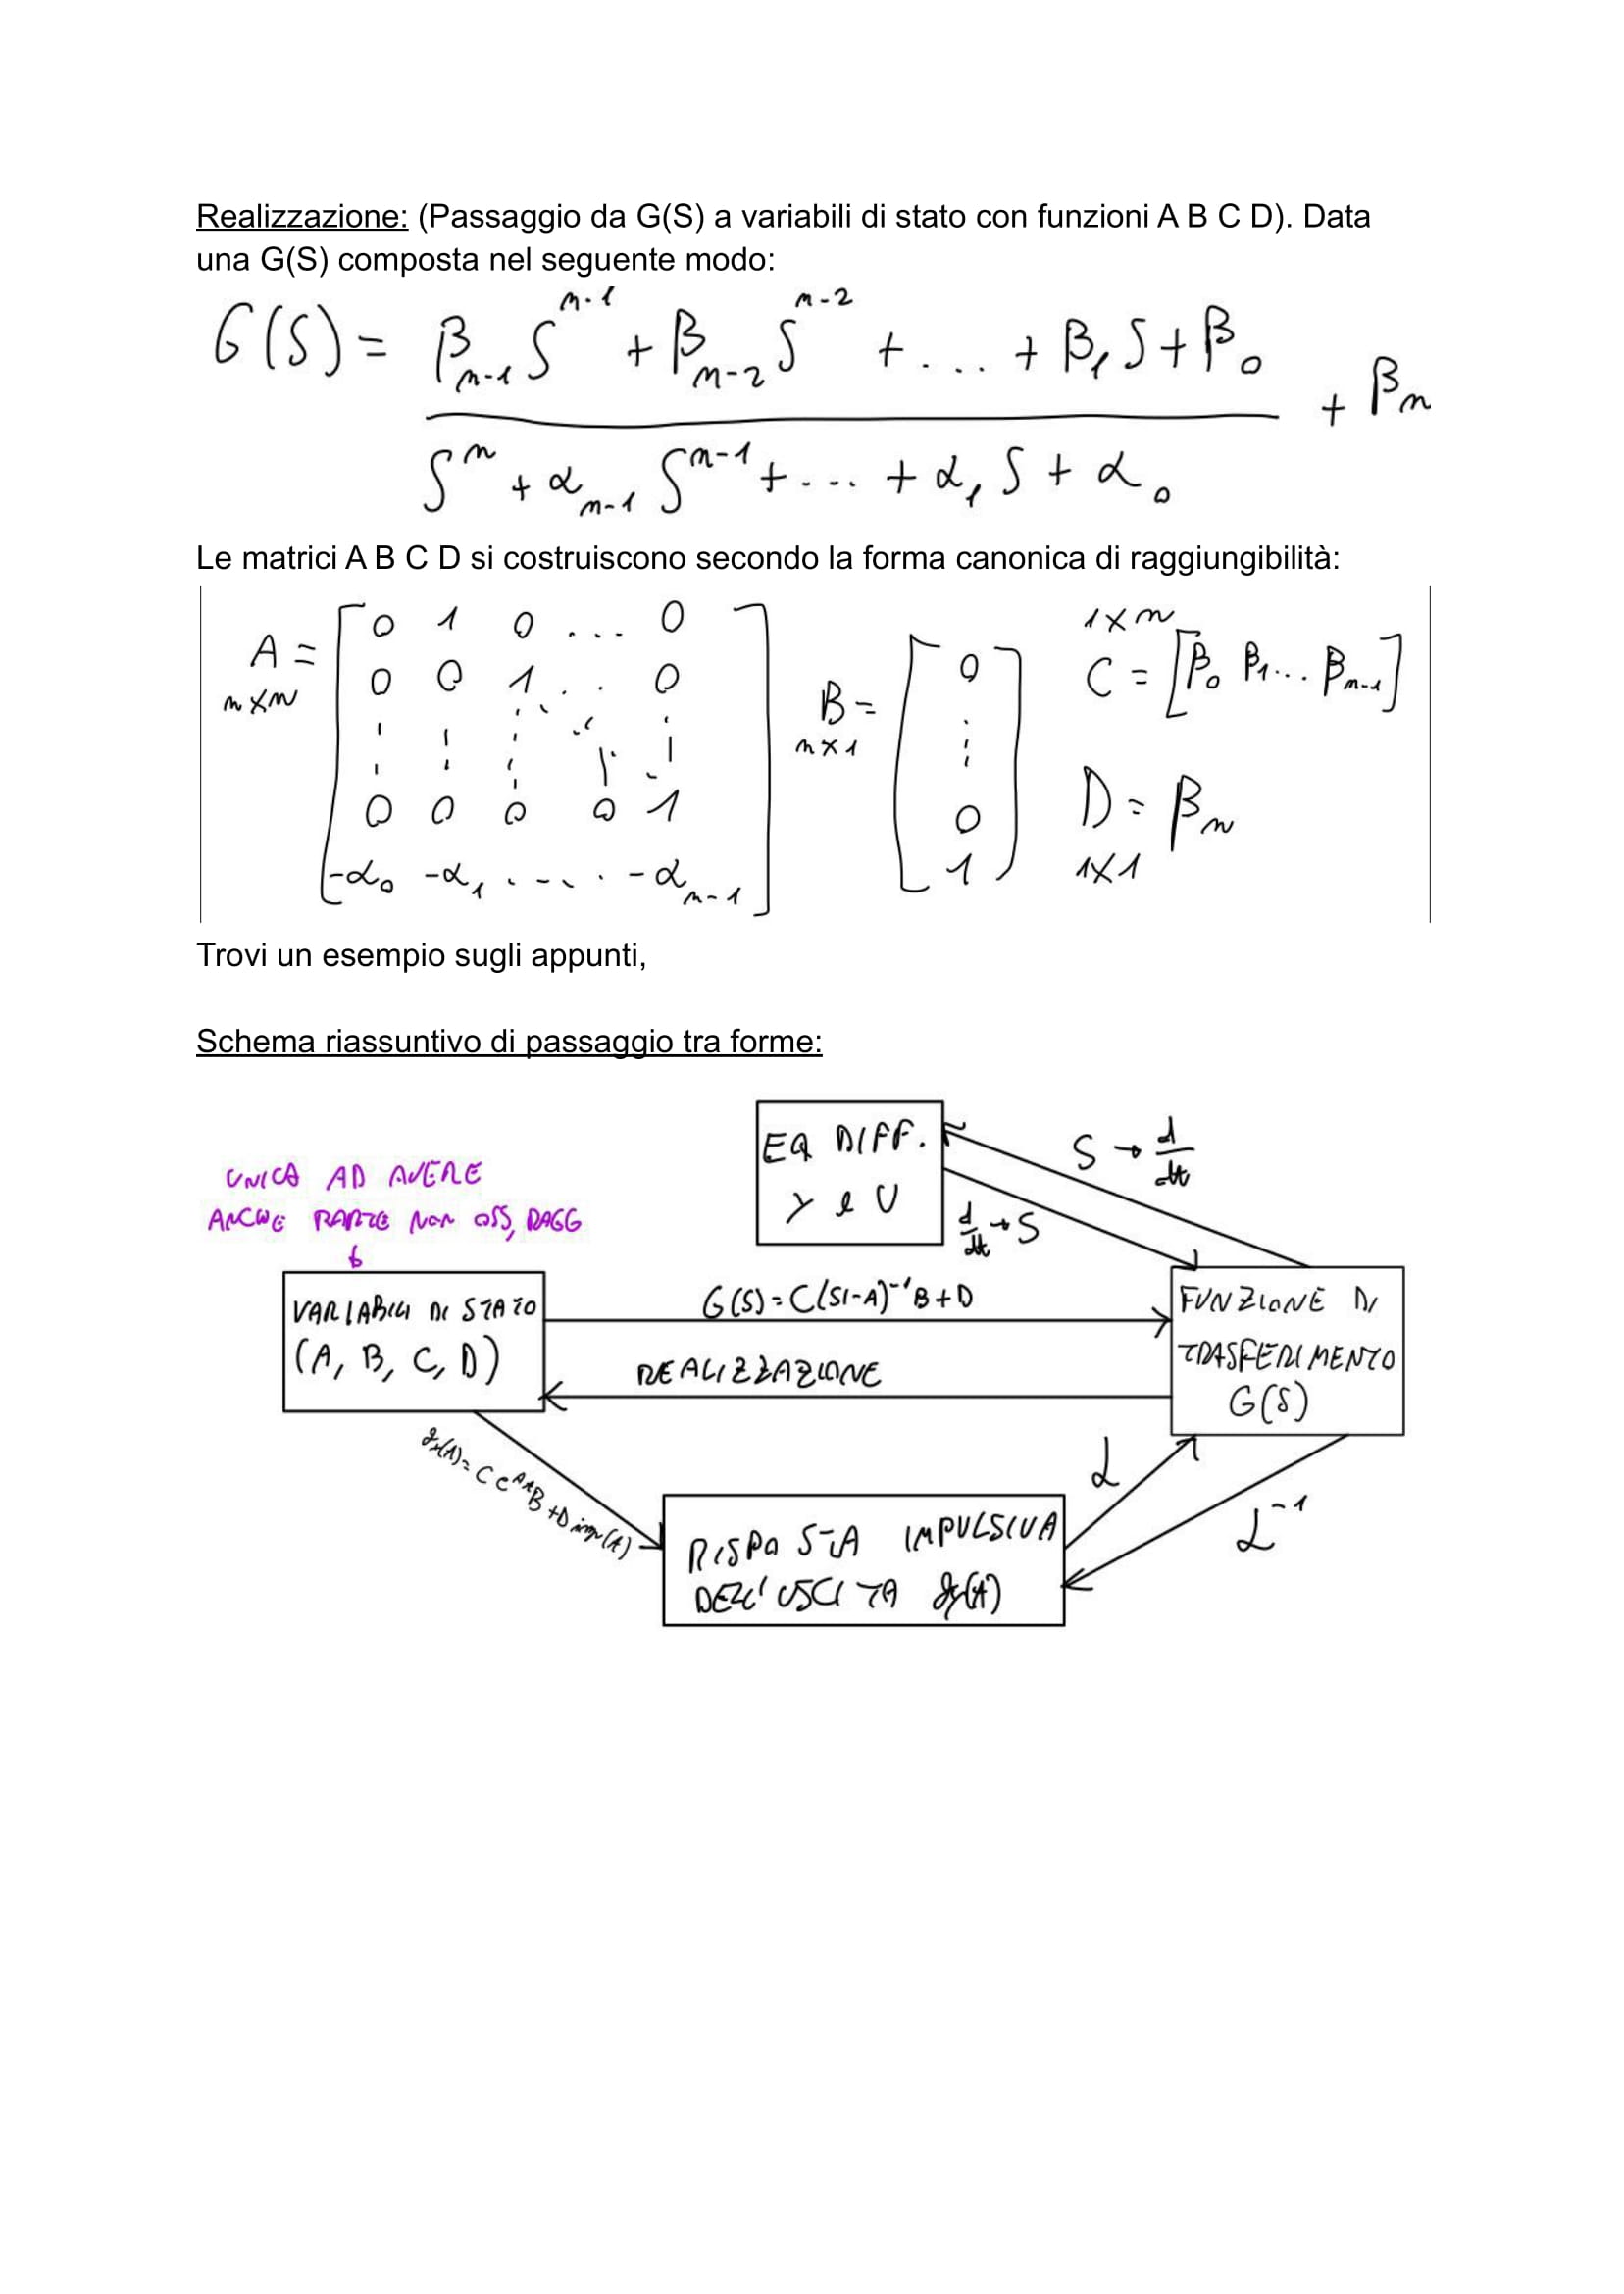 Realizzazione: (Passaggio da G(S) a variabili di stato con funzioni A B C D). Data
una G(S) composta nel seguente modo:
G(S) = (β_{n-1} S^{n-1} + β_{n-2} S^{n-2} + ... + β_1 S + β_0) / (S^n + α_{n-1} S^{n-1} + ... + α_1 S + α_0) + β_n
Le matrici A B C D si costruiscono secondo la forma canonica di raggiungibilità:
A = n×n
0 1 0 ... 0
0 0 1 . . 0
0 0 0 0 1
-α_0 -α_1 . - . . -α_{n-1}
B = n×1
0
⋮
0
1
1×n
C = [β_0 β_1 ... β_{n-1}]
D = β_n
1×1
Trovi un esempio sugli appunti,
Schema riassuntivo di passaggio tra forme:
EQ DIFF.
Y e U
S → d/dt
d/dt → S
UNICA AD AVERE
ANCHE PARTE NON OSS, RAGG
VARIABILI DI STATO
(A, B, C, D)
G(S) = C(SI-A)^{-1}B+D
REALIZZAZIONE
FUNZIONE DI
TRASFERIMENTO
G(S)
g_y(t) = C e^{At} B + D imp(t)
RISPOSTA IMPULSIVA
DELL'USCITA g_y(t)
L
L^{-1}